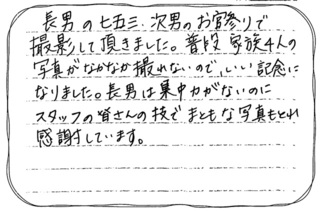 長男の七五三、次男のお宮参りで
撮影して頂きました。普段家族4人の
写真がなかなか撮れないので、いい記念に
なりました。長男は集中力がないのに
スタッフの皆さんの技でまともな写真もとれ
感謝しています。